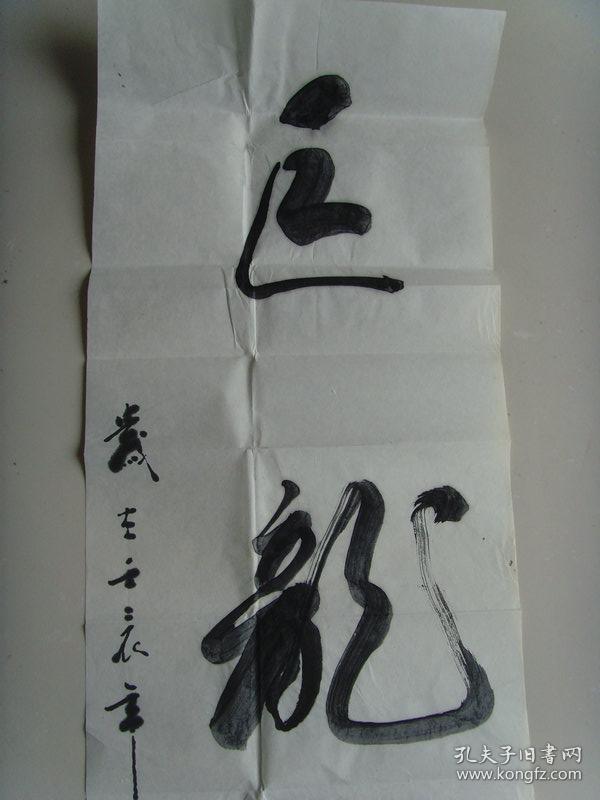 巨龍
歲在壬辰年
孔夫子旧書网
www.kongfz.com